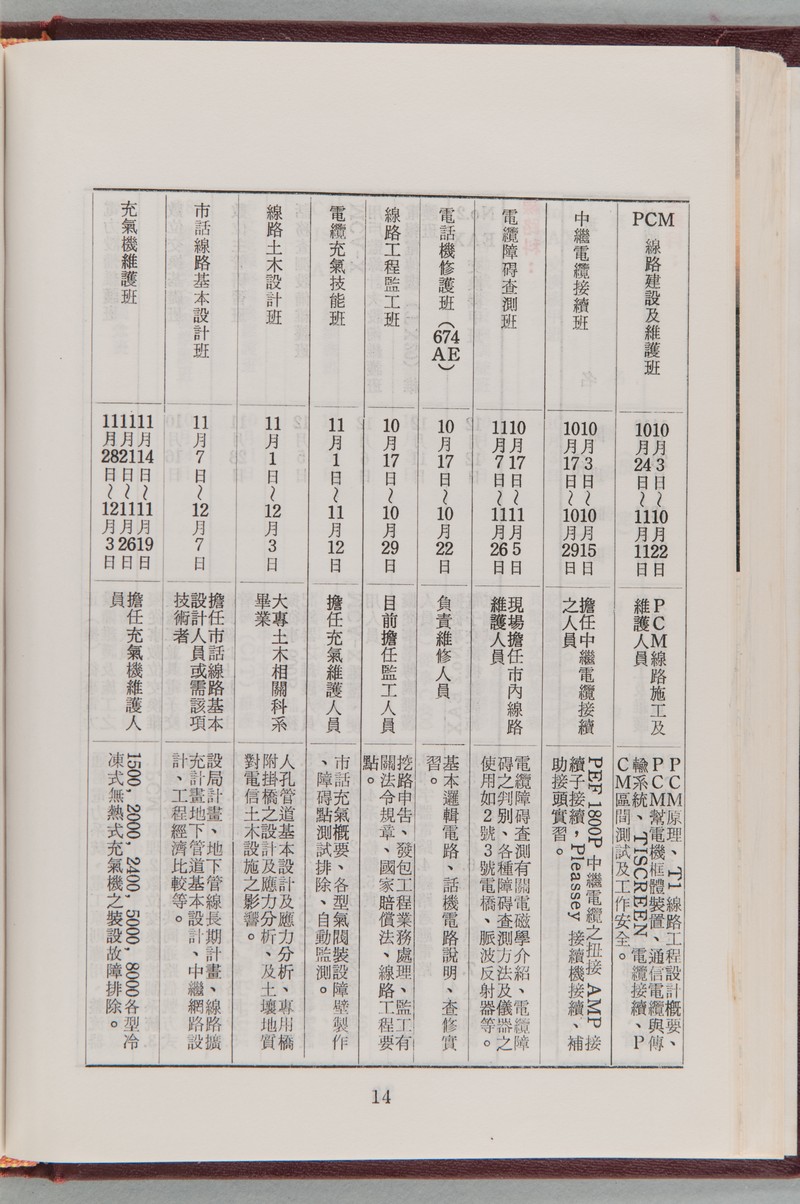 PCM 線路建設及維護班
10月3日～10月22日
10月24日～11月11日
PCM線路施工及
維護人員
PCM原理、T1線路工程設計概要、
PCM幫電機框體裝置、通信電纜與傳
輸系統、TISCREEN 電纜接續、P
CM區間測試及工作安全。
中繼電纜接續班
10月3日～10月15日
10月17日～10月29日
擔任中繼電纜接續
之人員
PEF 1800P 中繼電纜之扭接 AMP 接
續子接續，Pleassey 接續機接續、補
助接頭實習。
電纜障碍查測班
10月17日～11月5日
11月7日～11月26日
現場擔任市內線路
維護人員
電纜障碍查測有關電磁學介紹、電纜障
碍之判別、各種障碍查測方法及儀器之
使用如2號3號電橋、脈波反射器等。
電話機修護班（674AE）
10月17日～10月22日
負責維修人員
基本邏輯電路、話機電路說明、查修實
習。
線路工程監工班
10月17日～10月29日
目前擔任監工人員
挖路申告、發包工程業務處理、監工有
關法令規章、國家賠償法、線路工程要
點。
電纜充氣技能班
11月1日～11月12日
擔任充氣維護人員
市話充氣概要、各型氣閥裝設障壁製作
、障碍點測試排除、自動監測。
線路土木設計班
11月1日～12月3日
大專土木相關科系
畢業
人孔管道基本設計及應力分析、專用橋
附掛橋之設計及應力分析、及土壤地質
對電信土木設施之影響。
市話線路基本設計班
11月7日～12月7日
擔任市話線路基本
設計人員或需該項
技術者
設局計畫、地下管線長期計畫、線路擴
充計畫地下管道基本設計、中繼網路設
計、工程經濟比較等。
充氣機維護班
11月14日～11月19日
11月21日～11月26日
11月28日～12月3日
擔任充氣機維護人
員
1500, 2000, 2400, 5000, 8000各型冷
凍式無熱式充氣機之裝設故障排除。
14